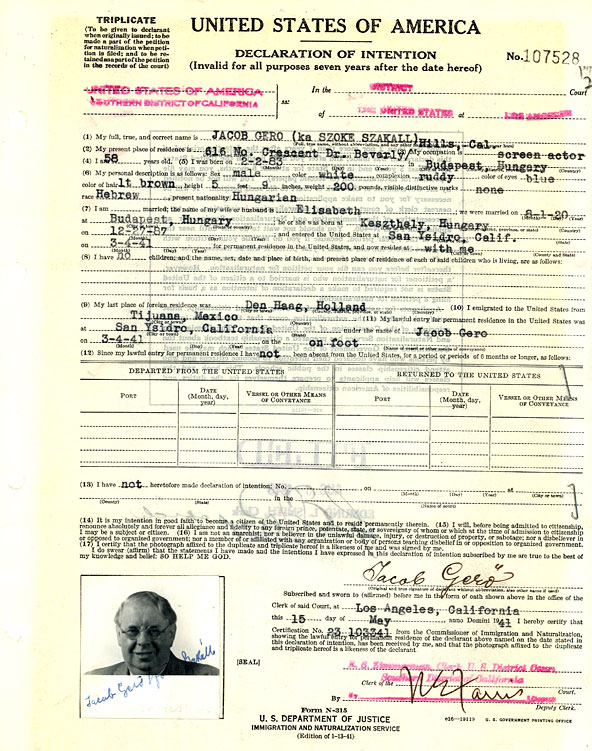 TRIPLICATE
(To be given to declarant
when originally issued; to be
made a part of the petition
for naturalization when peti-
tion is filed; and to be re-
tained as a part of the petition
in the records of the court)
UNITED STATES OF AMERICA
DECLARATION OF INTENTION
(Invalid for all purposes seven years after the date hereof)
No. 107528
UNITED STATES OF AMERICA
SOUTHERN DISTRICT OF CALIFORNIA
ss:
In the DISTRICT Court
of THE UNITED STATES at LOS ANGELES
(1) My full, true, and correct name is JACOB GERO (ka SZOKE SZAKALL)
(2) My present place of residence is 616 No. Crescent Dr. Beverly Hills, Cal. My occupation is screen actor
(4) I am 58 years old. (5) I was born on 2-2-83 in Budapest, Hungary
(6) My personal description is as follows: Sex male color white complexion ruddy color of eyes blue
color of hair lt brown, height 5 feet 9 inches, weight 200 pounds, visible distinctive marks none
race Hebrew, present nationality Hungarian
(7) I am married; the name of my wife or husband is Elisabeth; we were married on 8-1-20
at Budapest, Hungary; he or she was born at Keszthely, Hungary
on 12-27-87 and entered the United States at San Ysidro, Calif.
on 3-4-41 for permanent residence in the United States, and now resides at with me
(8) I have no children; and the name, sex, date and place of birth, and present place of residence of each of said children who is living, are as follows:
(9) My last place of foreign residence was Den Haag, Holland (10) I emigrated to the United States from
Tijuana, Mexico (11) My lawful entry for permanent residence in the United States was
at San Ysidro, California under the name of Jacob Gero
on 3-4-41 on the on foot
(12) Since my lawful entry for permanent residence I have not been absent from the United States, for a period or periods of 6 months or longer, as follows:
DEPARTED FROM THE UNITED STATES
RETURNED TO THE UNITED STATES
PORT
DATE (Month, day, year)
VESSEL OR OTHER MEANS OF CONVEYANCE
PORT
DATE (Month, day, year)
VESSEL OR OTHER MEANS OF CONVEYANCE
(13) I have not heretofore made declaration of intention: No. on at
(Month) (Day) (Year) (City or town)
in the
(County) (State) (Name of court)
(14) It is my intention in good faith to become a citizen of the United States and to reside permanently therein. (15) I will, before being admitted to citizenship,
renounce absolutely and forever all allegiance and fidelity to any foreign prince, potentate, state, or sovereignty of whom or which at the time of admission to citizenship
I may be a subject or citizen. (16) I am not an anarchist; nor a believer in the unlawful damage, injury, or destruction of property, or sabotage; nor a disbeliever in
or opposed to organized government; nor a member of or affiliated with any organization or body of persons teaching disbelief in or opposition to organized government.
(17) I certify that the photograph affixed to the duplicate and triplicate hereof is a likeness of me and was signed by me.
I do swear (affirm) that the statements I have made and the intentions I have expressed in this declaration of intention subscribed by me are true to the best of
my knowledge and belief: SO HELP ME GOD.
Jacob Gerő
(Original and true signature of declarant without abbreviation, also other name if used)
Subscribed and sworn to (affirmed) before me in the form of oath shown above in the office of the
Clerk of said Court, at Los Angeles, California
this 15 day of May anno Domini 1941 I hereby certify that
Certification No. 23 103341 from the Commissioner of Immigration and Naturalization,
showing the lawful entry for permanent residence of the declarant above named on the date stated in
this declaration of intention, has been received by me, and that the photograph affixed to the duplicate
and triplicate hereof is a likeness of the declarant
[SEAL]
R. S. Zimmerman, Clerk U. S. District Court,
Southern District of California
Clerk of the Court.
By Deputy Clerk.
Jacob Gerő
Form N-315
U. S. DEPARTMENT OF JUSTICE
IMMIGRATION AND NATURALIZATION SERVICE
(Edition of 1-13-41)
U. S. GOVERNMENT PRINTING OFFICE